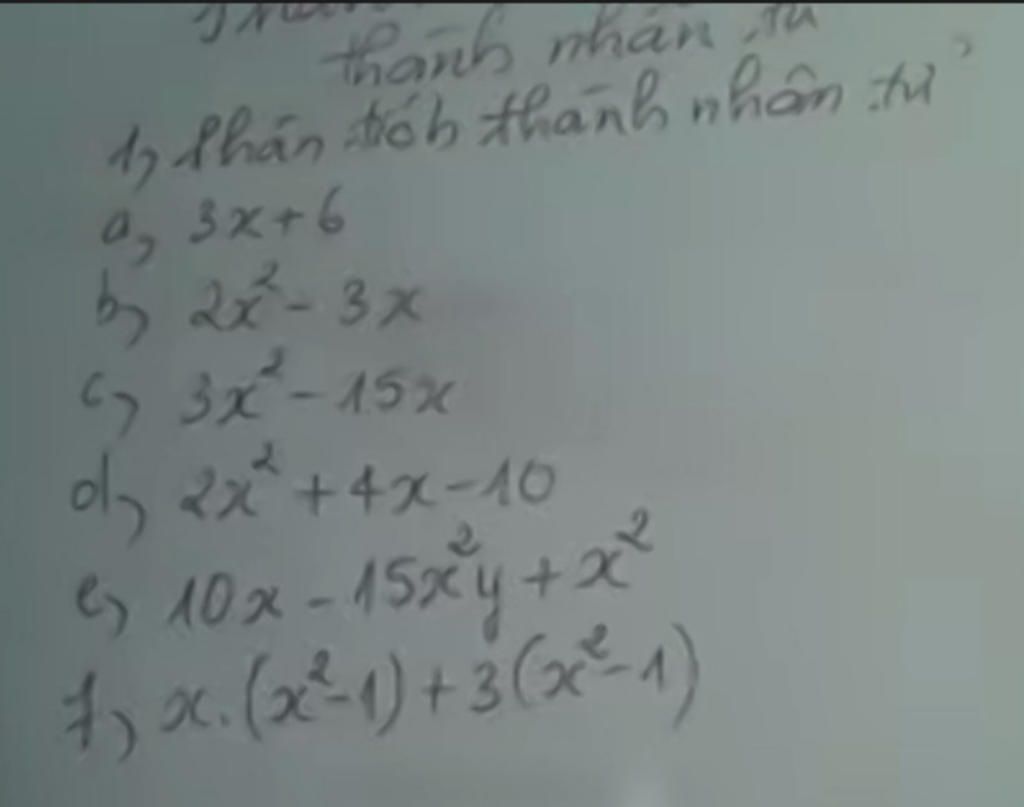 thành nhân tử
1, Phân tích thành nhân tử
a, 3x + 6
b, 2x² - 3x
c, 3x² - 15x
d, 2x² + 4x - 10
e, 10x - 15x²y + x²
f, x.(x² - 1) + 3(x² - 1)